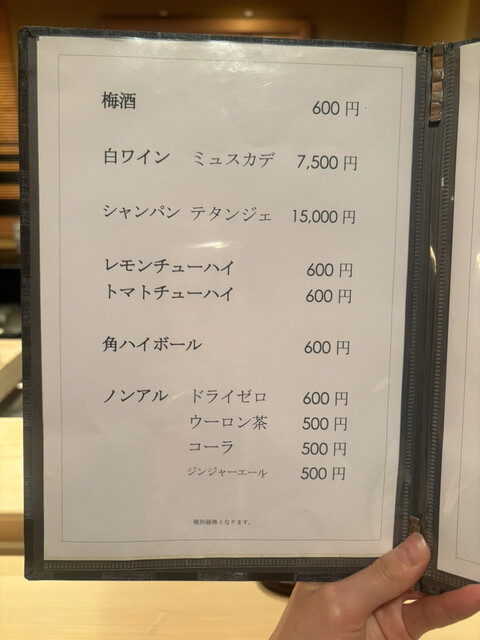 梅酒 600 円
白ワイン ミュスカデ 7,500 円
シャンパン テタンジェ 15,000 円
レモンチューハイ 600 円
トマトチューハイ 600 円
角ハイボール 600 円
ノンアル ドライゼロ 600 円
ウーロン茶 500 円
コーラ 500 円
ジンジャーエール 500 円
税別価格となります。